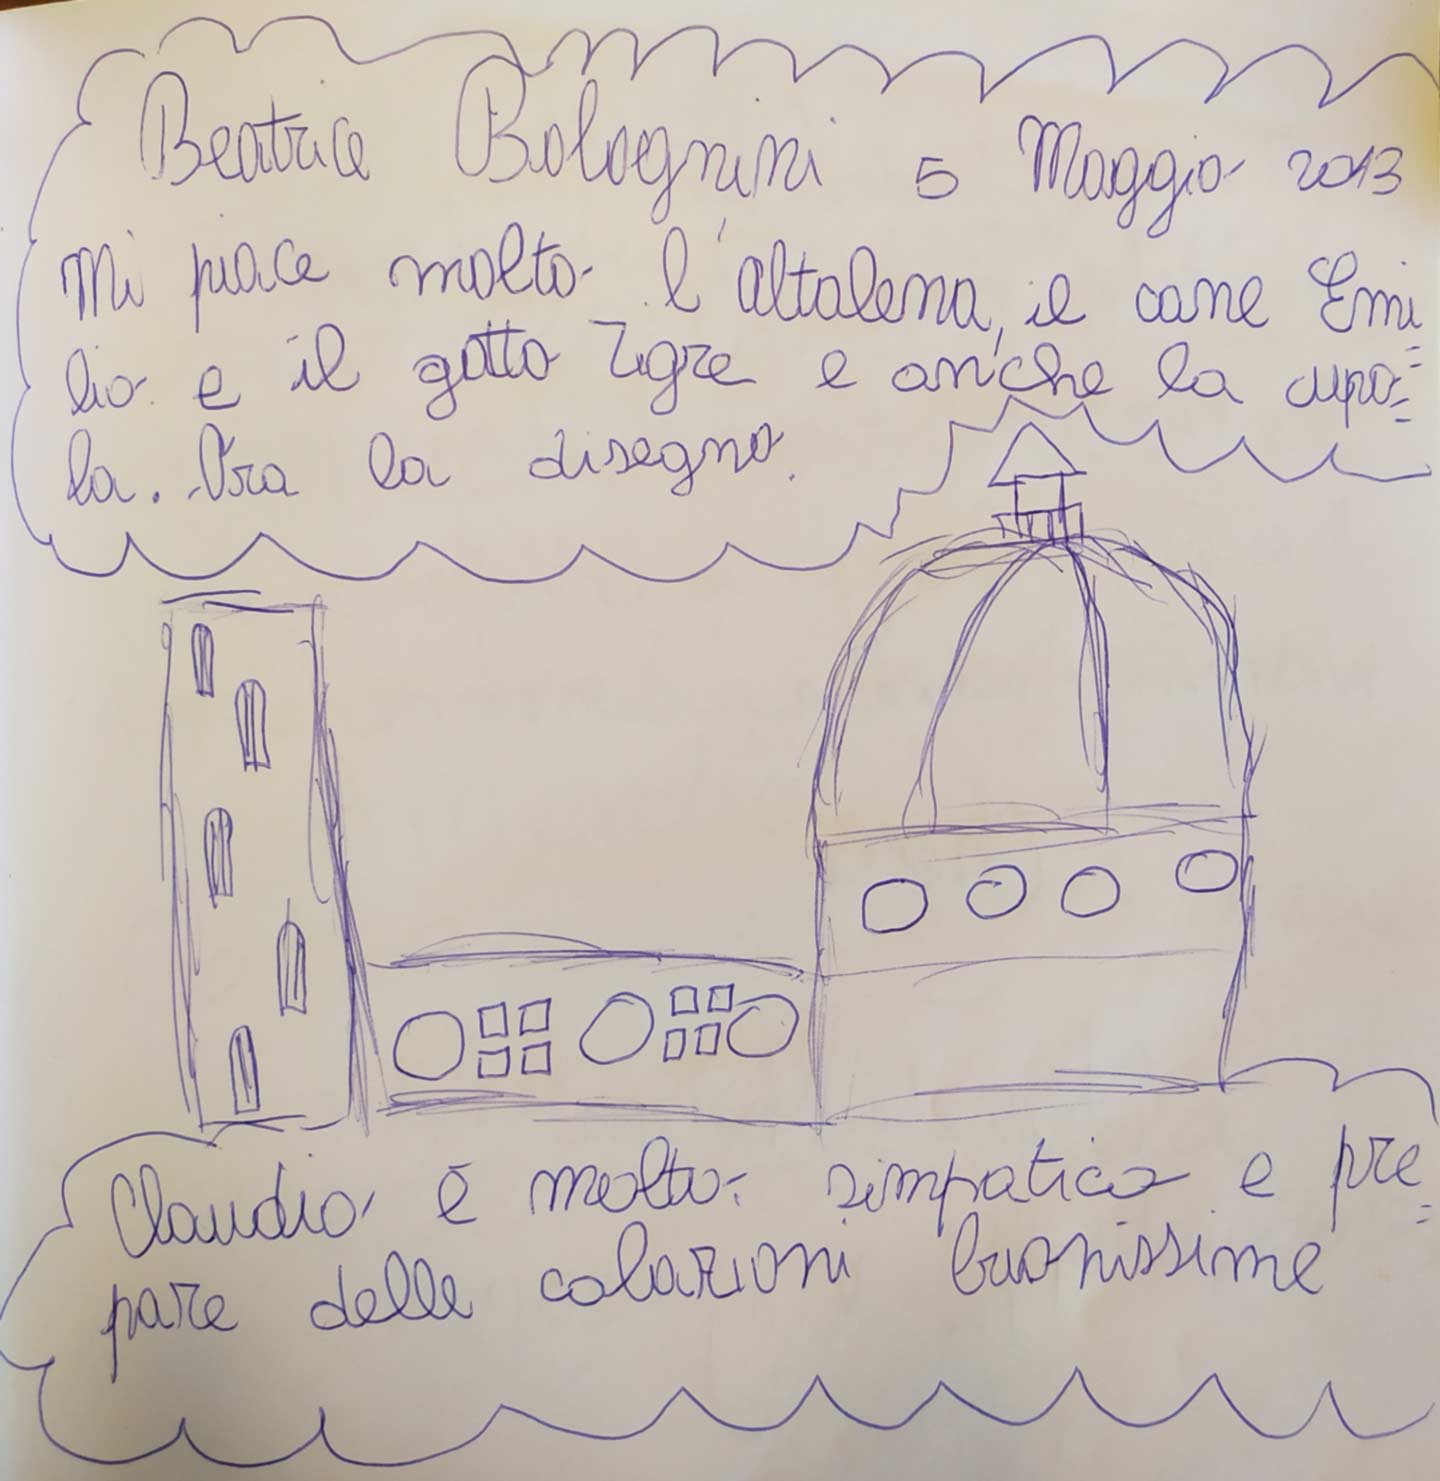 Beatrice Bolognini 5 Maggio 2013
Mi piace molto l'altalena, il cane Emi
lio e il gatto Tigre e anche la cupo=
la. Ora la disegno.
Claudio è molto simpatico e pre
=
pare delle colazioni buonissime